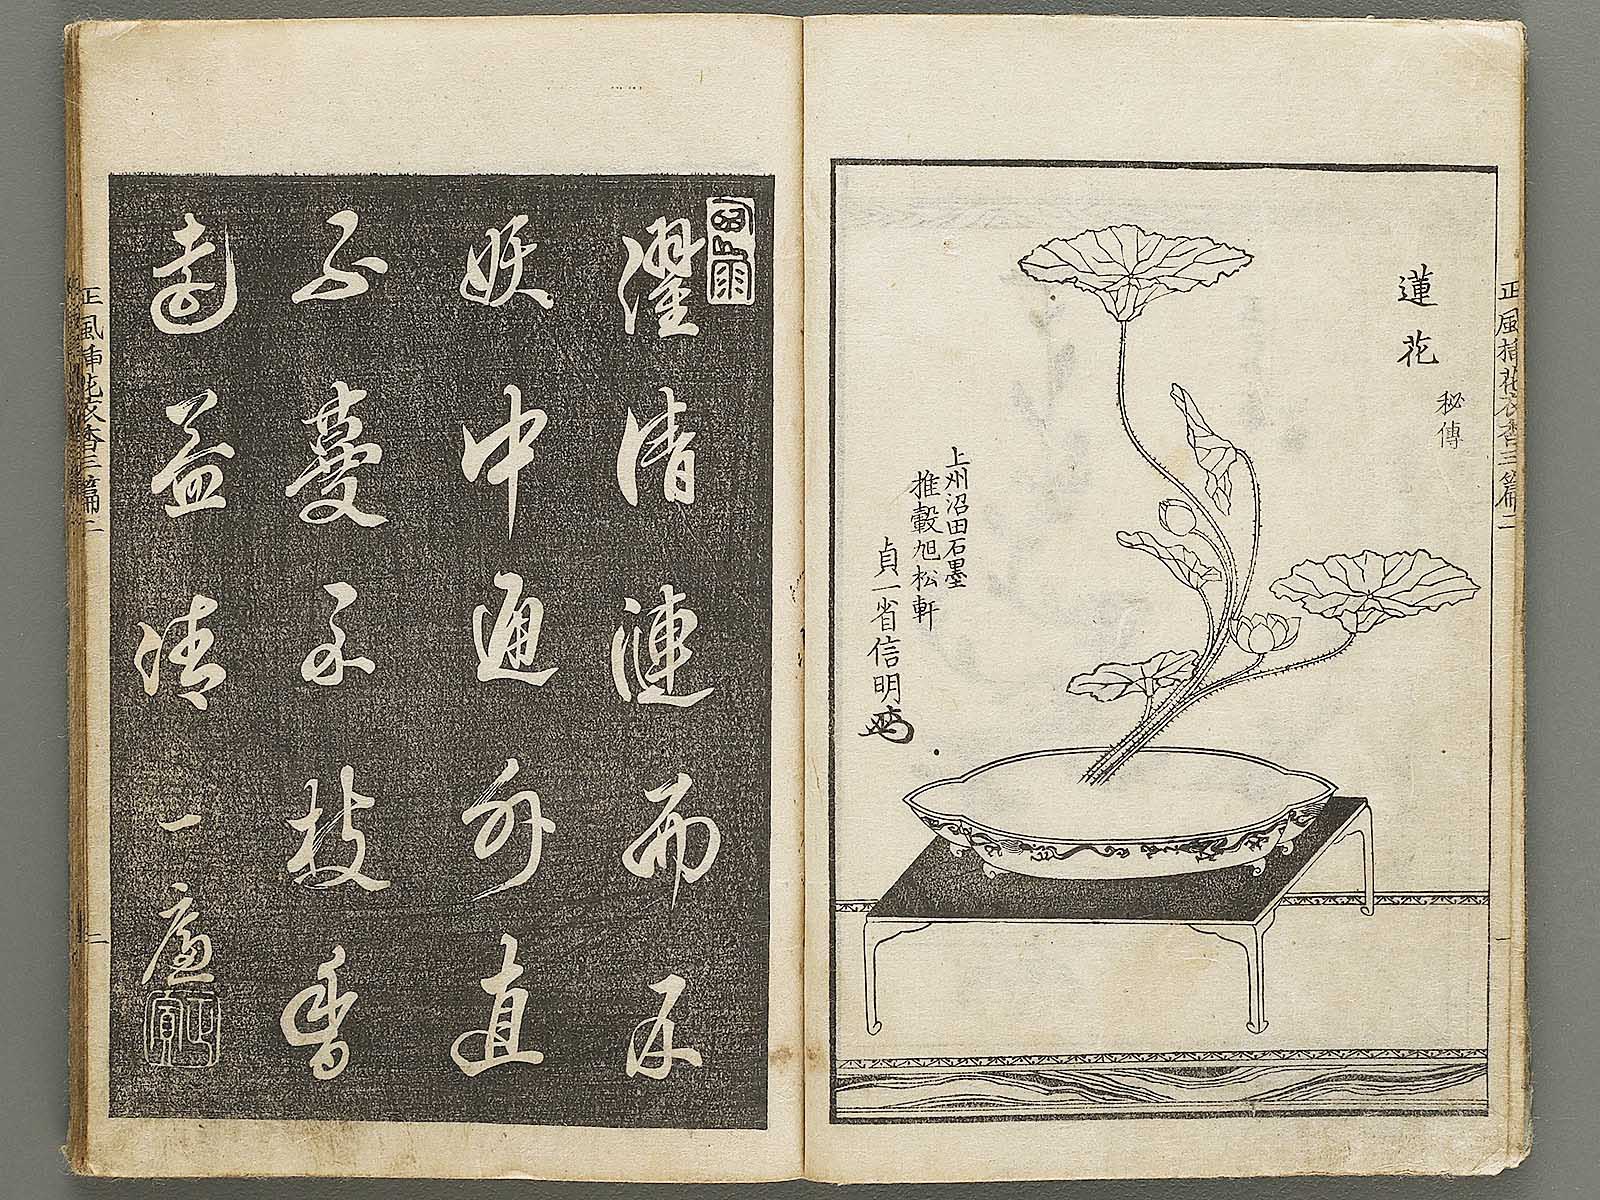 蓮花
秘傳
上州沼田石墨
推轂旭松軒
貞一省信明
濯清漣而不
妖中通外直
不蔓不枝香
遠益清 一廬
正風挿花衣香三篇二